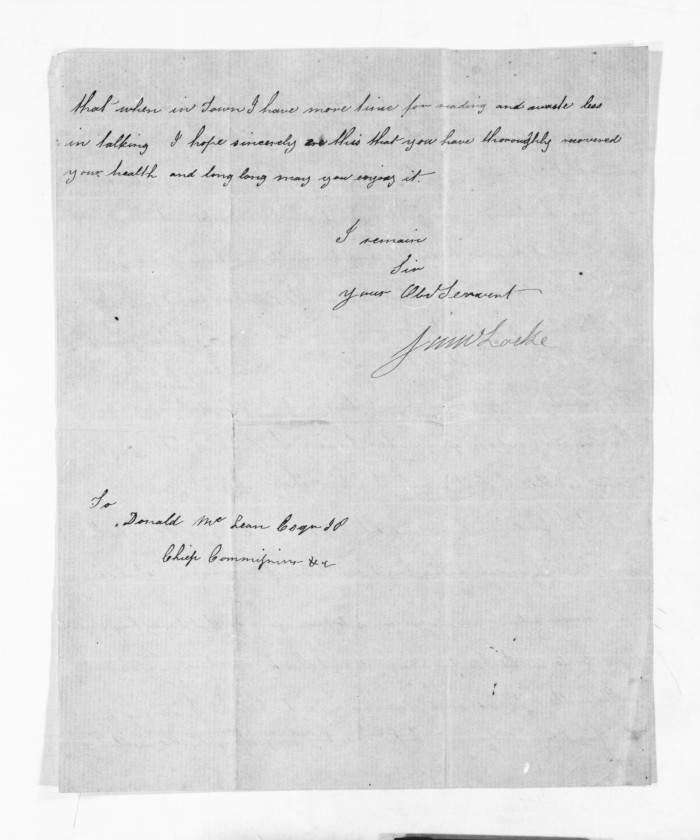 that when in Town I have more time for reading and waste less
in talking I hope sincerely this that you have thoroughly recovered
your health and long long may you enjoy it.
I remain
Sir
your Obd Servant
Locke
To
Donald Mc Lean Esqr JP
Chief Commissioner &c